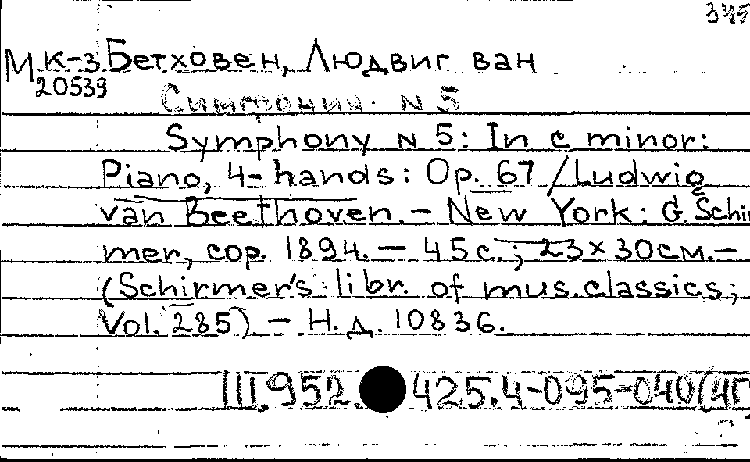 345
М К-3 Бетховен, Людвиг ван
20539
Симфонии. N 5
Symphony N 5: In c minor:
Piano, 4-hands: Op. 67 / Ludwig
van Beethoven. – New York: G. Schir
mer, cop. 1894. – 45 с.; 23×30см. –
(Schirmer's libr. of mus. classics;
Vol. 285) – Н. д. 10836.
III.952. 425.4-095-040(4